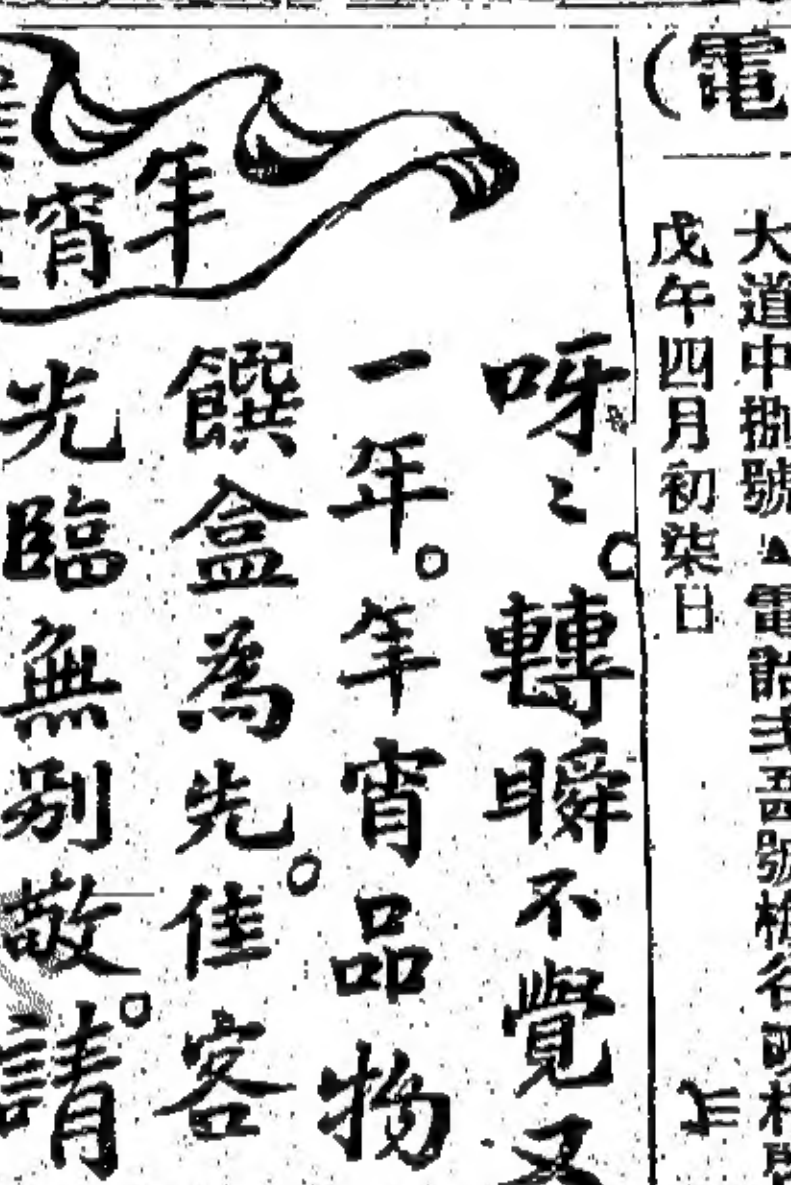 (電
大道中捌號▲電話弍五四號
戊午四月初柒日
年宵
呀〻。轉瞬不覺又
一年。年宵品物
饌盒為先。佳客
光臨無別敬。請